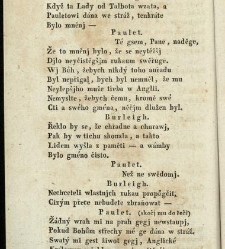 Když ta Lady od Talbota wzata, a
Pauletowi dána we stráž, tenkráte
Bylo mněnj —
Paulet.
Té gsem, Pane, naděge,
Že to mněnj bylo, že se neytěžšj
Djlo neyčistěgšjm rukaum swěruge.
Wj Bůh, žebych nikdy toho auřadu
Byl nepřigal, bych byl nemněl, že mu
Neylepšjho muže třeba w Anglii.
Nemyslte, žebych čemu, kromě swé
Cti a swého gména, něčjm dlužen byl.
Burleigh.
Řeklo by se, že chradne a churawj,
Pak by w tichu skonala, a takto
Lidem wyšla z paměti — a wámby
Bylo gméno čisto.
Paulet.
Než ne swědomj.
Burleigh.
Nechceteli wlastnjch rukau propůgčit,
Cizým přece nebudete zbraňowat —
Paulet. (skočj mu do řeči)
Žádný wrah mi na práh gegj newstaupj,
Pokud Bohům střechy mé ge dána w stráž.
Swatý mi gest žiwot gegj, Anglické